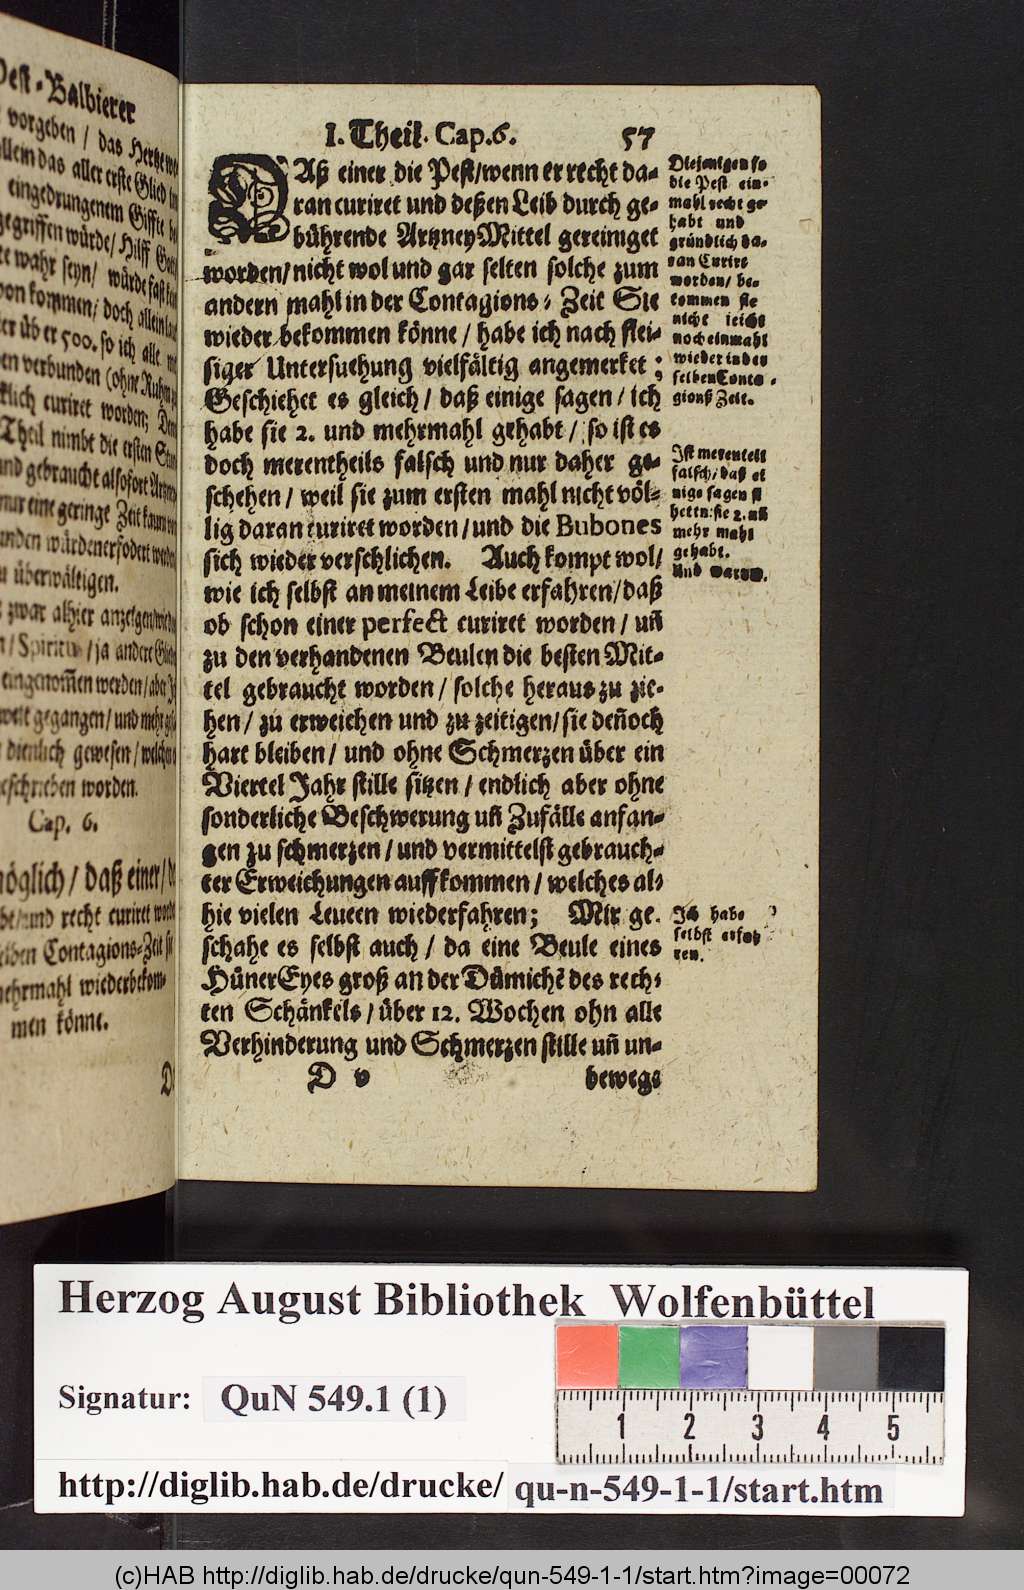 Pest-Balbierer
vorgeben / das Hertze
das aller erste Glied
eingedrungenem Giffte
würde / Hilff
wahr seyn / würde fast
kommen / doch allein
über 500. so ich alle
verbunden (ohne Ruhm
curiret worden; Den
Theil nimbt die ersten
und gebraucht alsofort
nur eine geringe Zeit kaum
würden erfodert werden
überwältigen.
zwar alhier anzeigen
/ Spiritus / ja andere
eingenom̃en werden / aber
gegangen / und mehr
dienlich gewesen / welche
beschrieben worden.
Cap. 6.
möglich / daß einer /
und recht curiret
Contagions-Zeit
mehrmahl wiederbekom-
men könne.
I. Theil. Cap. 6. 57
DAß einer die Pest / wenn er recht da-
ran curiret und deßen Leib durch ge-
bührende Artzney Mittel gereiniget
worden / nicht wol und gar selten solche zum
andern mahl in der Contagions-Zeit Sie
wieder bekommen könne / habe ich nach flei-
siger Untersuchung vielfältig angemerket;
Geschiehet es gleich / daß einige sagen / ich
habe sie 2. und mehrmahl gehabt / so ist es
doch merentheils falsch und nur daher ge-
schehen / weil sie zum ersten mahl nicht völ-
lig daran curiret worden / und die Bubones
sich wieder verschlichen. Auch kompt wol /
wie ich selbst an meinem Leibe erfahren / daß
ob schon einer perfect curiret worden / uñ
zu den verhandenen Beulen die besten Mit-
tel gebraucht worden / solche heraus zu zie-
hen / zu erweichen und zu zeitigen / sie deñoch
hart bleiben / und ohne Schmerzen über ein
Viertel Jahr stille sitzen / endlich aber ohne
sonderliche Beschwerung uñ Zufälle anfan-
gen zu schmerzen / und vermittelst gebrauch-
ter Erweichungen auffkommen / welches al-
hie vielen Leuten wiederfahren; Mir ge-
schahe es selbst auch / da eine Beule eines
Hüner Eyes groß an der Dümichẽ des rech-
ten Schänkels / über 12. Wochen ohn alle
Verhinderung und Schmerzen stille uñ un-
D v beweg-
Diejenigen so
die Pest ein-
mahl recht ge
habt und
gründlich da-
ran Curirt
worden / be-
kommen sie
nicht leicht
noch einmahl
wieder in der
selben Conta-
gionß Zeit.
Ist merenteil
falsch / daß ei
nige sagen si
hettn: sie 2. uñ
mehr mahl
gehabt.
Und warum.
Ich habe
selbst erfah
ren.
Herzog August Bibliothek Wolfenbüttel
Signatur: QuN 549.1 (1)
1 2 3 4 5
http://diglib.hab.de/drucke/ qu-n-549-1-1/start.htm
(c)HAB http://diglib.hab.de/drucke/qun-549-1-1/start.htm?image=00072